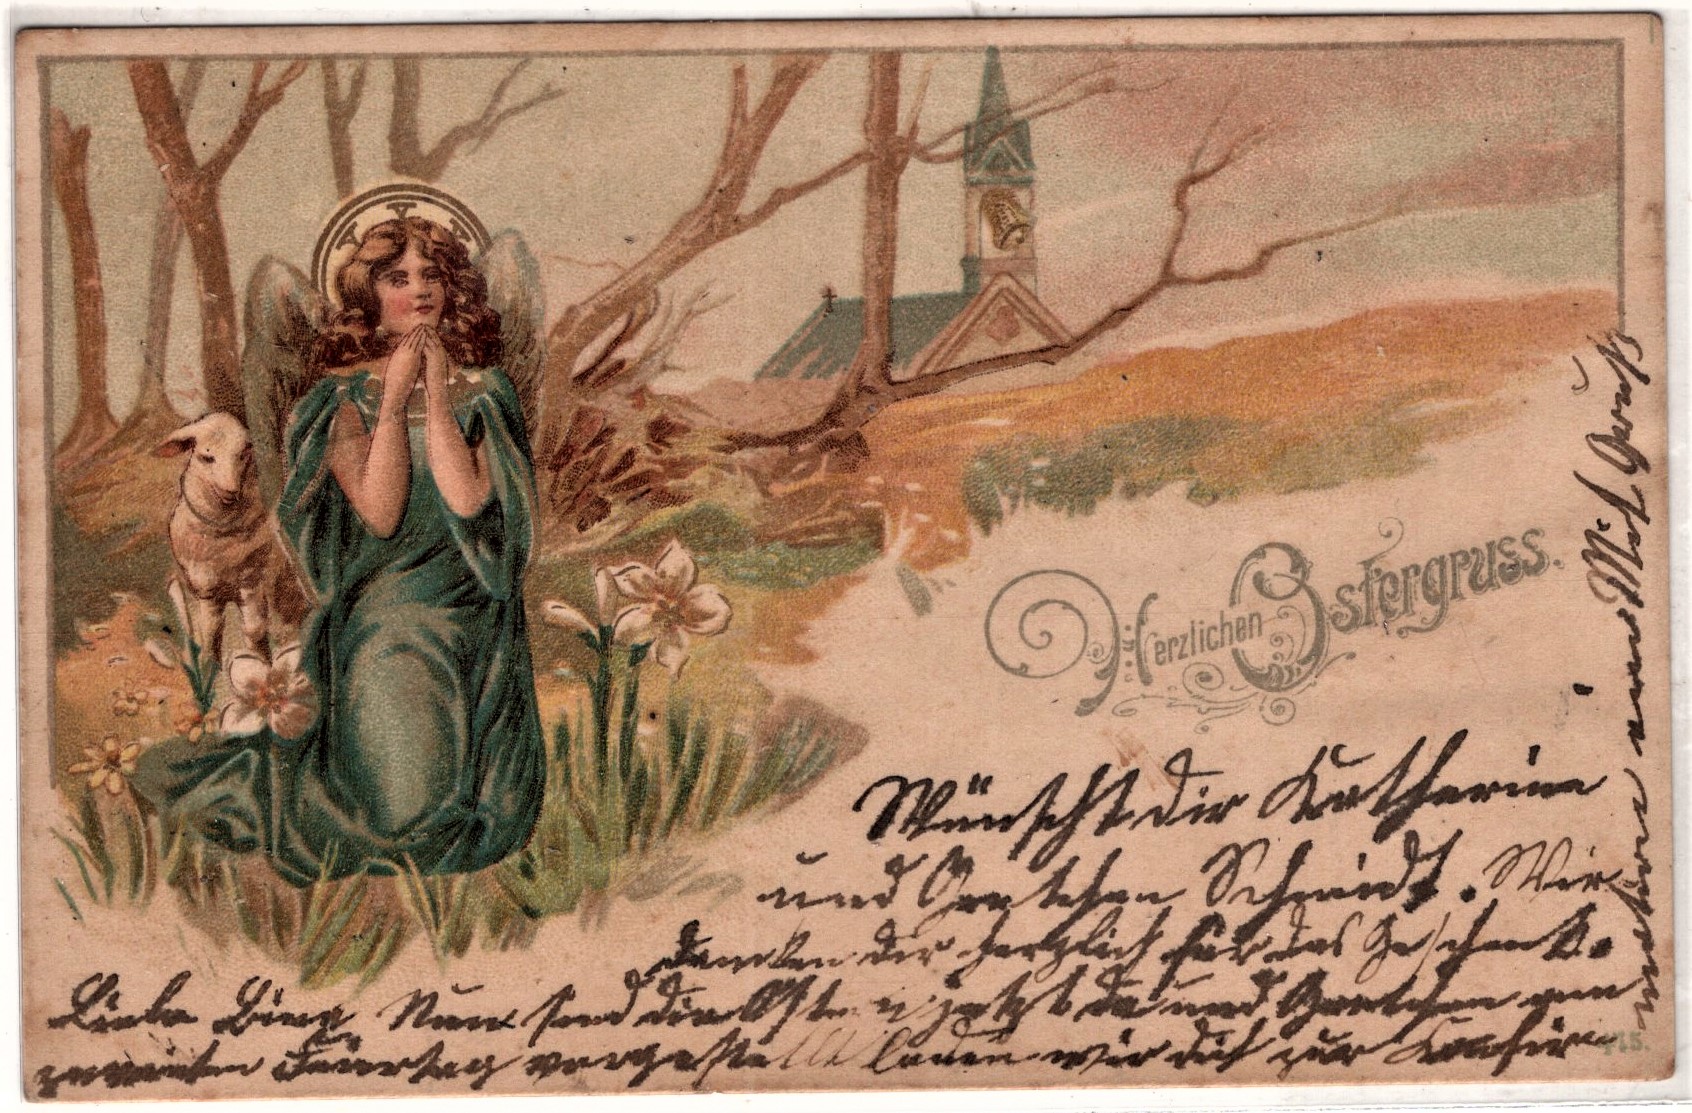 Herzlichen Ostergruss.
Wünscht dir Katharina
und Gretchen Schmidt. Wir
danken dir herzlich für das Geschenk.
Liebe Nun sind die Ostern jetzt da und Gretchen am
zweiten Feiertag vorgestellt laden wir dich zur Konfir-
Mit Gruß
415.